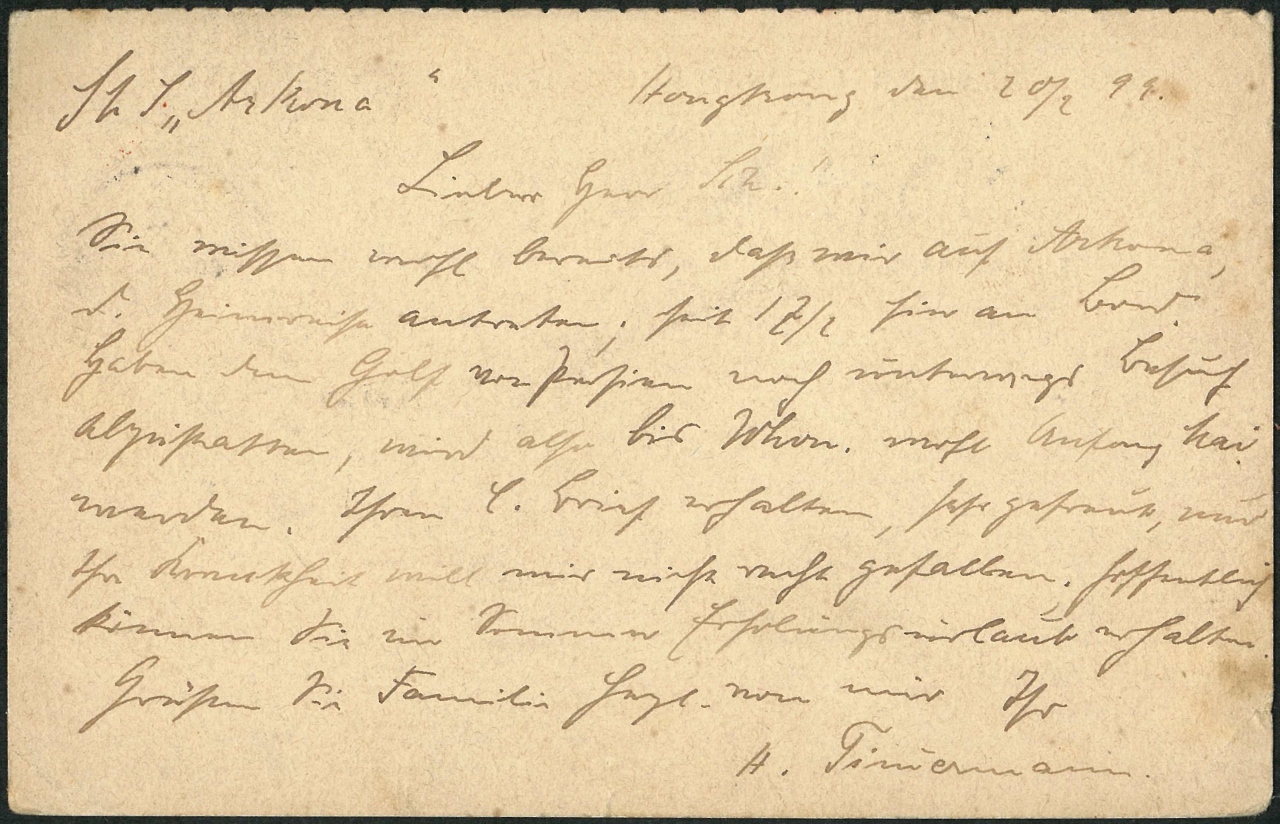 S. M. S. „Arkona“ Hongkong den 20/2 99.
Lieber Herr Sch.!
Sie wissen wohl bereits, daß wir auf Arkona,
d. Heimreise antreten, seit 17/2 hier an Bord.
Haben dem Golf von Persien noch unterwegs Besuch
abzustatten, wird also bis Whvn. wohl Anfang Mai
werden. Ihren l. Brief erhalten, sehr gefreut, nur
Ihre Krankheit will mir nicht recht gefallen, hoffentlich
können Sie im Sommer Erholungsurlaub erhalten.
Grüßen Sie Familie herzl. von mir Ihr
H.